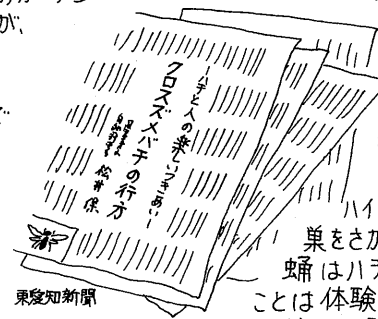 が、
ーハチと人の楽しいつきあいー
クロスズメバチの行方
松井 保
東愛知新聞
ハイ
巣をさが
蛹はハチ
ことは体験